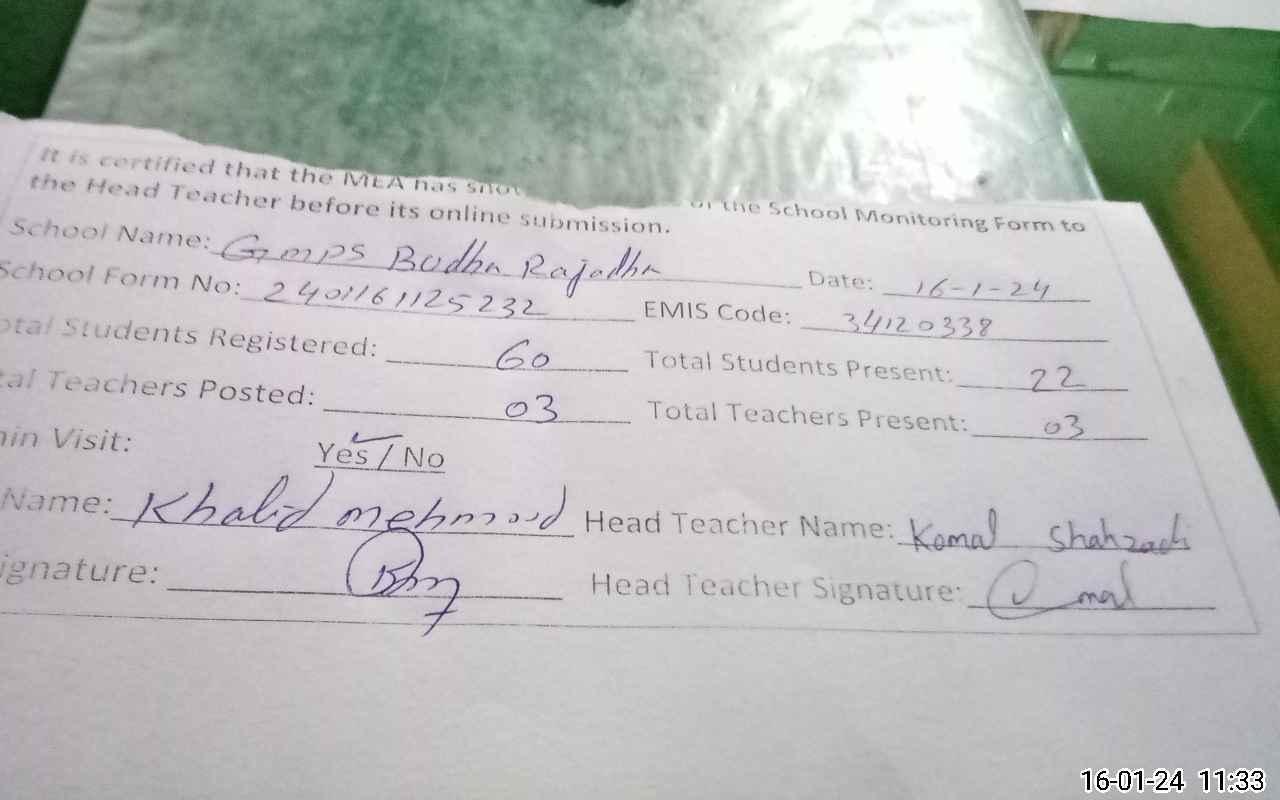 It is certified that the MEA has shown of the School Monitoring Form to
the Head Teacher before its online submission.
School Name: GMPS Budha Rajadha Date: 16-1-24
School Form No: 2401161125232 EMIS Code: 34120338
otal Students Registered: 60 Total Students Present: 22
tal Teachers Posted: 03 Total Teachers Present: 03
min Visit: Yes / No
Name: Khalid mehmood Head Teacher Name: Komal Shahzadi
ignature: Head Teacher Signature:
16-01-24 11:33